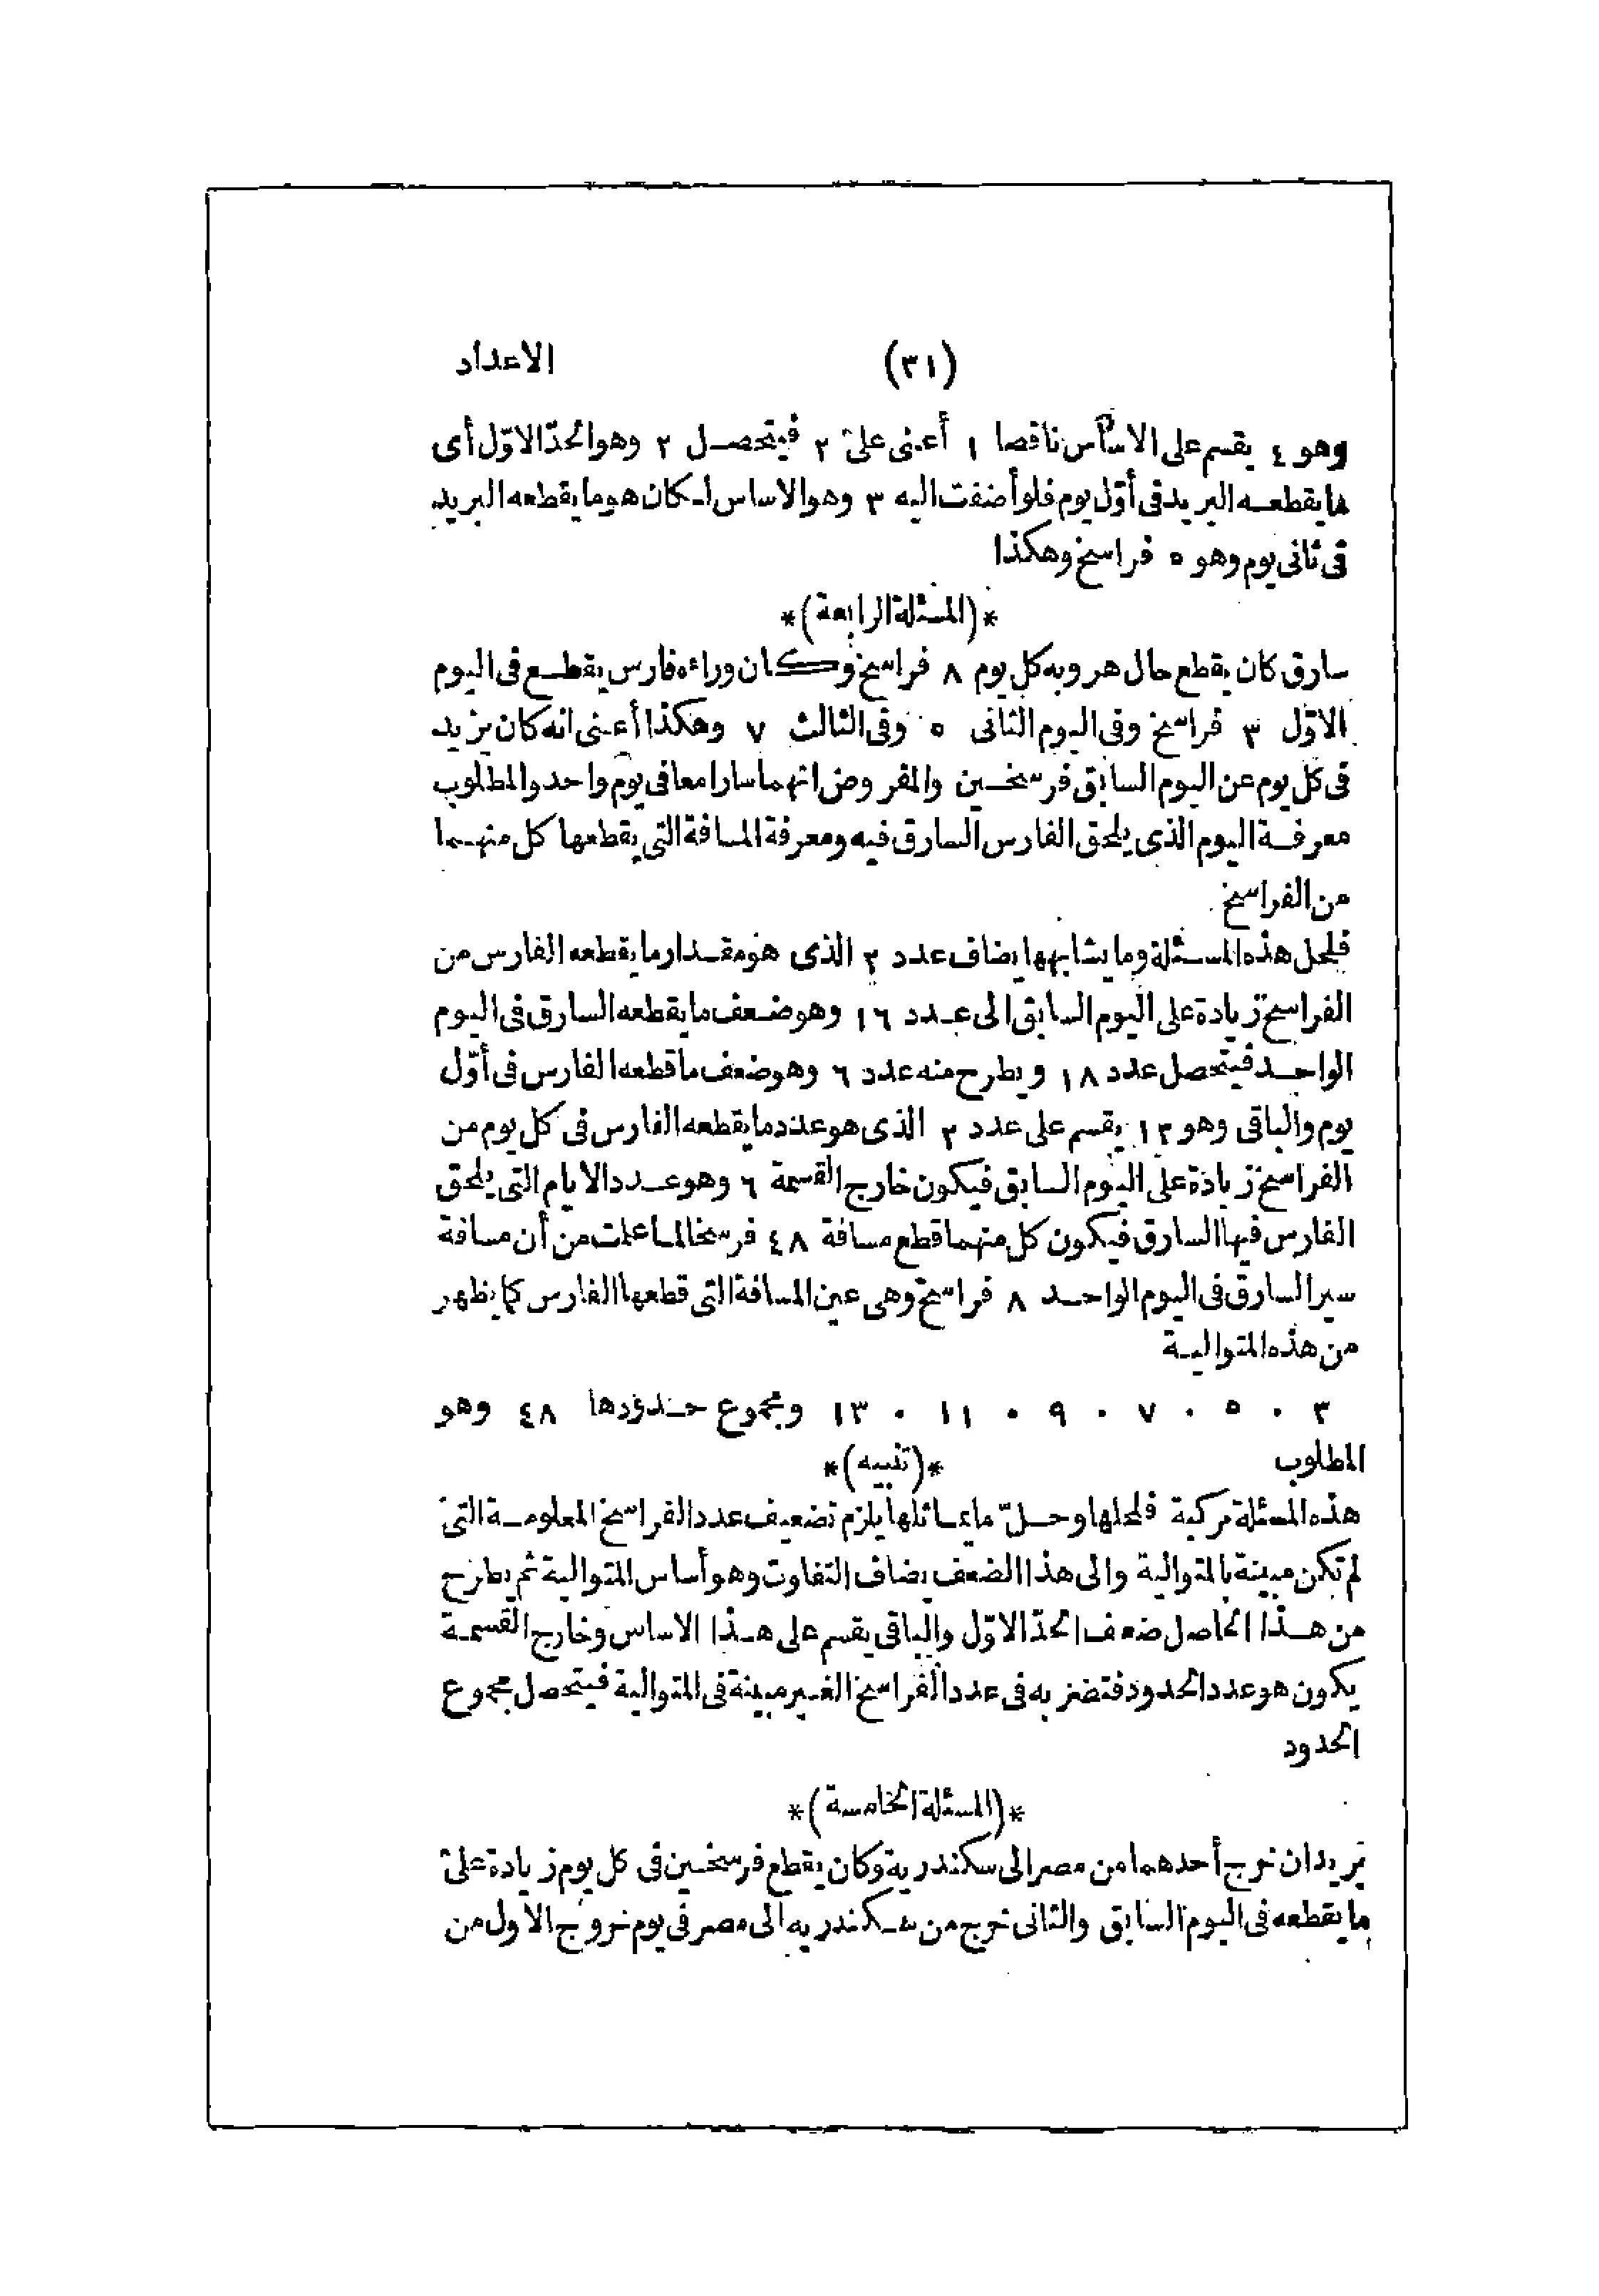 (٣١) الاعداد
وهو ٤ يقسم على الاساس ناقصا ١ أعنى على ٢ فيتحصل ٢ وهو الحدّ الاوّل أى
ما يقطعه البريد فى أوّل يوم فلو أضفت اليه ٣ وهو الاساس لكان هو ما يقطعه البريد
فى ثانى يوم وهو ٥ فراسخ وهكذا
*(المسئلة الرابعة)*
سارق كان يقطع حال هروبه كل يوم ٨ فراسخ وكان وراءه فارس يقطع فى اليوم
الاوّل ٣ فراسخ وفى اليوم الثانى ٥ وفى الثالث ٧ وهكذا أعنى انه كان يزيد
فى كل يوم عن اليوم السابق فرسخين والمفروض انهما سارا معا فى يوم واحد والمطلوب
معرفة اليوم الذى يلحق الفارس السارق فيه ومعرفة المسافة التى يقطعها كل منهما
من الفراسخ
فلحل هذه المسئلة وما يشابهها يضاف عدد ٢ الذى هو مقدار ما يقطعه الفارس من
الفراسخ زيادة على اليوم السابق الى عدد ١٦ وهو ضعف ما يقطعه السارق فى اليوم
الواحد فيتحصل عدد ١٨ ويطرح منه عدد ٦ وهو ضعف ما قطعه الفارس فى أوّل
يوم والباقى وهو ١٢ يقسم على عدد ٢ الذى هو عدد ما يقطعه الفارس فى كل يوم من
الفراسخ زيادة على اليوم السابق فيكون خارج القسمة ٦ وهو عدد الايام التى يلحق
الفارس فيها السارق فيكون كل منهما قطع مسافة ٤٨ فرسخا لما علمت من أن مسافة
سير السارق فى اليوم الواحد ٨ فراسخ وهى عين المسافة التى قطعها الفارس كما يظهر
من هذه المتوالية
٣ . ٥ . ٧ . ٩ . ١١ . ١٣ ومجموع حدودها ٤٨ وهو
المطلوب *(تنبيه)*
هذه المسئلة مركبة فلحلها وحلّ ما يماثلها يلزم تضعيف عدد الفراسخ المعلومة التى
لم تكن مبينة بالمتوالية والى هذا الضعف يضاف التفاوت وهو أساس المتوالية ثم يطرح
من هذا الحاصل ضعف الحدّ الاوّل والباقى يقسم على هذا الاساس وخارج القسمة
يكون هو عدد الحدود فتضربه فى عدد الفراسخ الغير مبينة فى المتوالية فيتحصل مجموع
الحدود
*(المسئلة الخامسة)*
بريدان خرج أحدهما من مصر الى سكندرية وكان يقطع فرسخين فى كل يوم زيادة على
ما يقطعه فى اليوم السابق والثانى خرج من سكندريه الى مصر فى يوم خروج الاول من